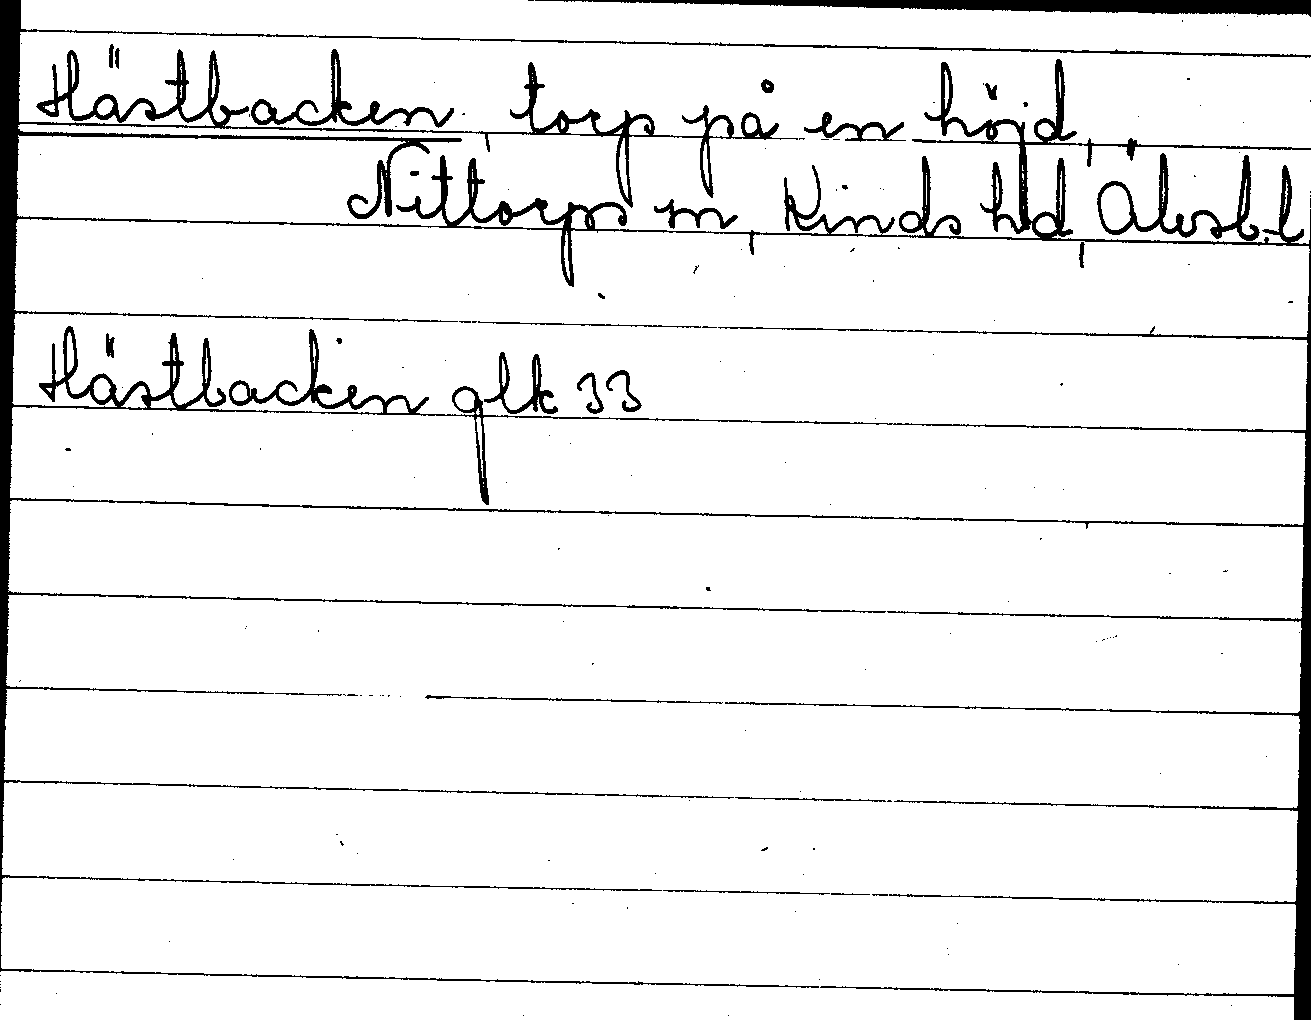 Hästbacken, torp på en höjd,
Nittorps sn, Kinds hd, Älvsb.l
Hästbacken glk 33